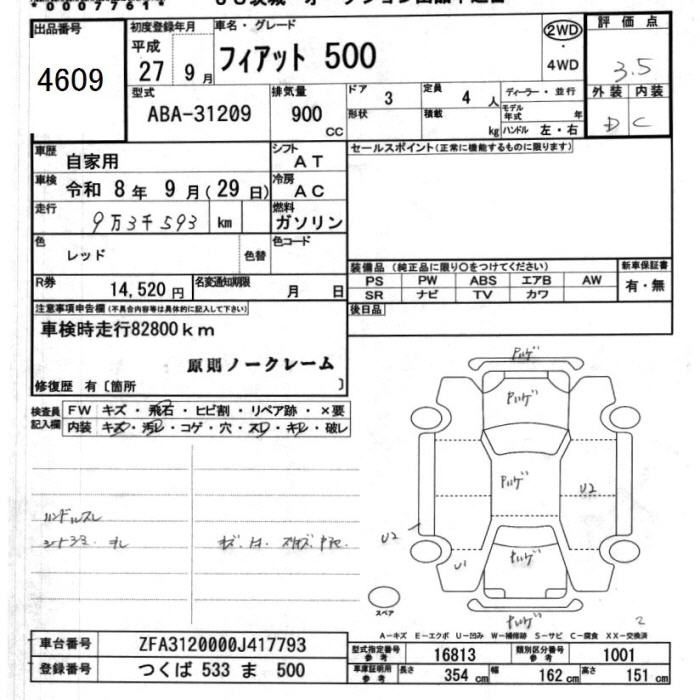 出品番号
4609
初度登録年月
平成
27 9月
車名・グレード
フィアット 500
2WD
・
4WD
評価点
3.5
外装 内装
D C
型式
ABA-31209
排気量
900
CC
ドア
3
定員
4 人
形状
積載
kg
ディーラー・並行
モデル年式 年
ハンドル 左・右
車歴
自家用
シフト
AT
車検
令和 8年 9月(29日)
冷房
AC
走行
9万3千593 km
燃料
ガソリン
色
レッド
色替
色コード
R券
14,520円
名変通知期限
月 日
セールスポイント(正常に機能するものに限ります)
装備品 (純正品に限り○をつけてください)
PS PW ABS エアB AW
SR ナビ TV カワ
新車保証書
有・無
後日品
注意事項申告欄(不具合内容等は具体的に記入して下さい)
車検時走行82800km
原則ノークレーム
修復歴 有〔箇所 〕
検査員記入欄
FW キズ・飛石・ヒビ割・リペア跡・×要
内装 キズ・汚レ・コゲ・穴・スレ・キレ・破レ
ハンドルスレ
U2
U2
U1
2
スペア
A-キズ E-エクボ U-凹み W-補修跡 S-サビ C-腐食 XX-交換済
車台番号
ZFA3120000J417793
登録番号
つくば 533 ま 500
型式指定番号
参考
16813
類別区分番号
参考
1001
車庫証明用
参考
長さ
354 cm
幅
162 cm
高さ
151 cm